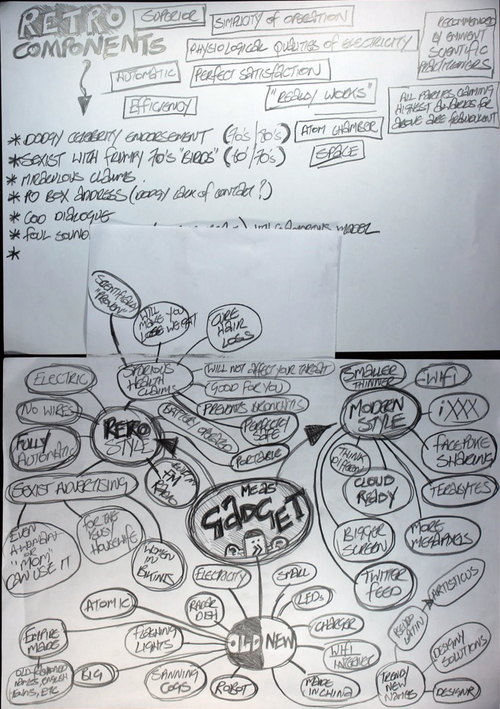 RETRO
COMPONENTS
SUPERIOR
SIMPLICITY OF OPERATION
PHYSIOLOGICAL QUALITIES OF ELECTRICITY
AUTOMATIC
PERFECT SATISFACTION
EFFICIENCY
"REALLY WORKS"
RECOMMENDED
BY EMINENT
SCIENTIFIC
PRACTITIONERS
ALL PARTIES CLAIMING
HIGHEST AWARDS FOR
ABOVE ARE FRAUDULENT
ATOM CHAMBER
SPACE
* DODGY CELEBRITY ENDORSEMENT (70's/80's)
* SEXIST WITH FRUMPY 70's "BIRDS" (60'/70's)
* MIRACULOUS CLAIMS.
* PO BOX ADDRESS (DODGY LACK OF CONTACT?)
* COO DIALOGUE
* FOUL SOUND
*
SCIENTIFICALLY
"PROVEN"
WILL
MAKE YOU
LOSE WEIGHT
CURE
HAIR
LOSS
SPURIOUS
HEALTH
CLAIMS
WILL NOT AFFECT YOUR THROAT
GOOD FOR YOU
PREVENTS BRONCHITIS
BATTERY OPERATED
PERFECTLY
SAFE
PORTABLE
ELECTRIC
NO WIRES
FULLY
AUTOMATIC
RETRO
STYLE
BUILT IN
FM
RADIO
SEXIST ADVERTISING
EVEN
A WOMAN
OR
"MOM"
CAN USE IT
FOR THE
BUSY
HOUSEWIFE
WOMEN
IN
BIKINIS
GADGET
SMALLER
THINNER
WIFI
MODERN
STYLE
iXXX
FACEBOOK
SHARING
TERABYTES
MORE
MEGAPIXELS
THINK
DIFFERENT
CLOUD
READY
BIGGER
SCREEN
TWITTER
FEED
OLD NEW
ELECTRICITY
SMALL
RADAR
DISH
LEDs
ATOMIC
FLASHING
LIGHTS
CHARGER
WIFI
INTERNET
EMPIRE
MADE
OLD FASHIONED
NAMES, ENGLISH
ETC
BIG
SPINNING
COGS
ROBOT
MADE
IN CHINA
TRENDY
NEW
NAMES
LATIN
ARTISTICUS
SOLUTIONS
DESIGNR